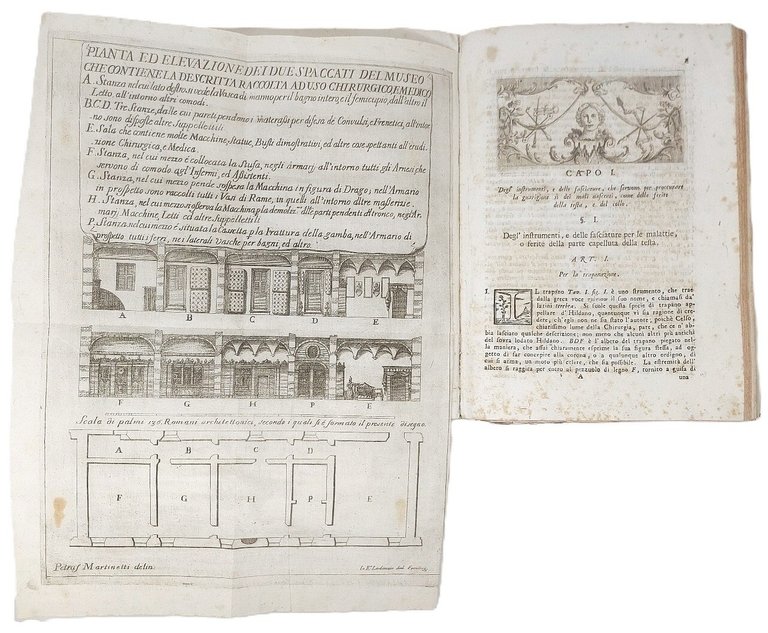 PIANTA ED ELEVAZIONE DEI DUE SPACCATI DEL MUSEO
CHE CONTIENE LA DESCRITTA RACCOLTA AD USO CHIRURGICO, E MEDICO
A. Stanza nel cui lato destro si vede la Vasca di marmo per il bagno intero, e il semicupio, dall'altro il
Letto, all'intorno altri comodi.
B.C.D. Tre Stanze, dalle cui pareti pendono i materassi per difesa de Convulsi, e Frenetici, all'intor
no sono disposte altre Suppellettili
E. Sala che contiene molte Macchine, Statue, Busti dimostrativi, ed altre cose spettanti all'erudi,
zione Chirurgica, e Medica
F. Stanza, nel cui mezo è collocata la Stufa, negli Armarj all'intorno tutti gli Arnesi che
servono di comodo agl'Infermi, ed Assistenti.
G. Stanza, nel cui mezo pende sospesa la Macchina in figura di Drago, nell'Armario
in prospetto sono raccolti tutti i Vasi di Rame, in quelli all'intorno altre masserizie.
H. Stanza, nel cui mezo
dalle parti pendenti di tronco, negl'Ar,
marj Macchine, Letti ed altre Suppellettili
P. Stanza nel cui mezo è situata la Cassetta p la Frattura della gamba, nell'Armario di
prospetto tutti i ferri, nei laterali Vasche per bagni, ed altro.
A B C D E
F G H P E
Scala di palmi 130. Romani architettonici, secondo i quali si è formato il presente disegno.
A B C D
F G H P E
Petrus Martinetti delin.
CAPO I.
Degl' instrumenti, e delle fasciature, che servono per procurare
la guarigione de' mali nascenti, come delle ferite
della testa, e del collo.
§. I.
Degl' instrumenti, e delle fasciature per le malattie,
o ferite della parte capelluta della testa.
ART. I.
Per la trapanazione.
I. IL trapano Tav. I. fig. I. è uno strumento, che trae
dalla greca voce il suo nome, e chiamasi da'
latini terebra. Si suole questa specie di trapano ap-
pellare d'Hildano, quantunque vi sia ragione di cre-
dere, ch'egli non ne sia stato l'autore, poichè Celso,
chiarissimo lume della Chirurgia, pare, che ce n'ab-
bia lasciato qualche descrizione; non meno che alcuni altri più antichi
del sovra lodato Hildano. BDF è l'albero del trapano piegato nel-
la maniera, che assai chiaramente esprime la sua figura stessa, ad og-
getto di far concepire alla corona, o a qualunque altro ordigno, di
cui si arma, un moto più celere, che sia possibile. La estremità dell'
albero si raggira per entro al pezzuolo di legno F, fornito a guisa di
A una